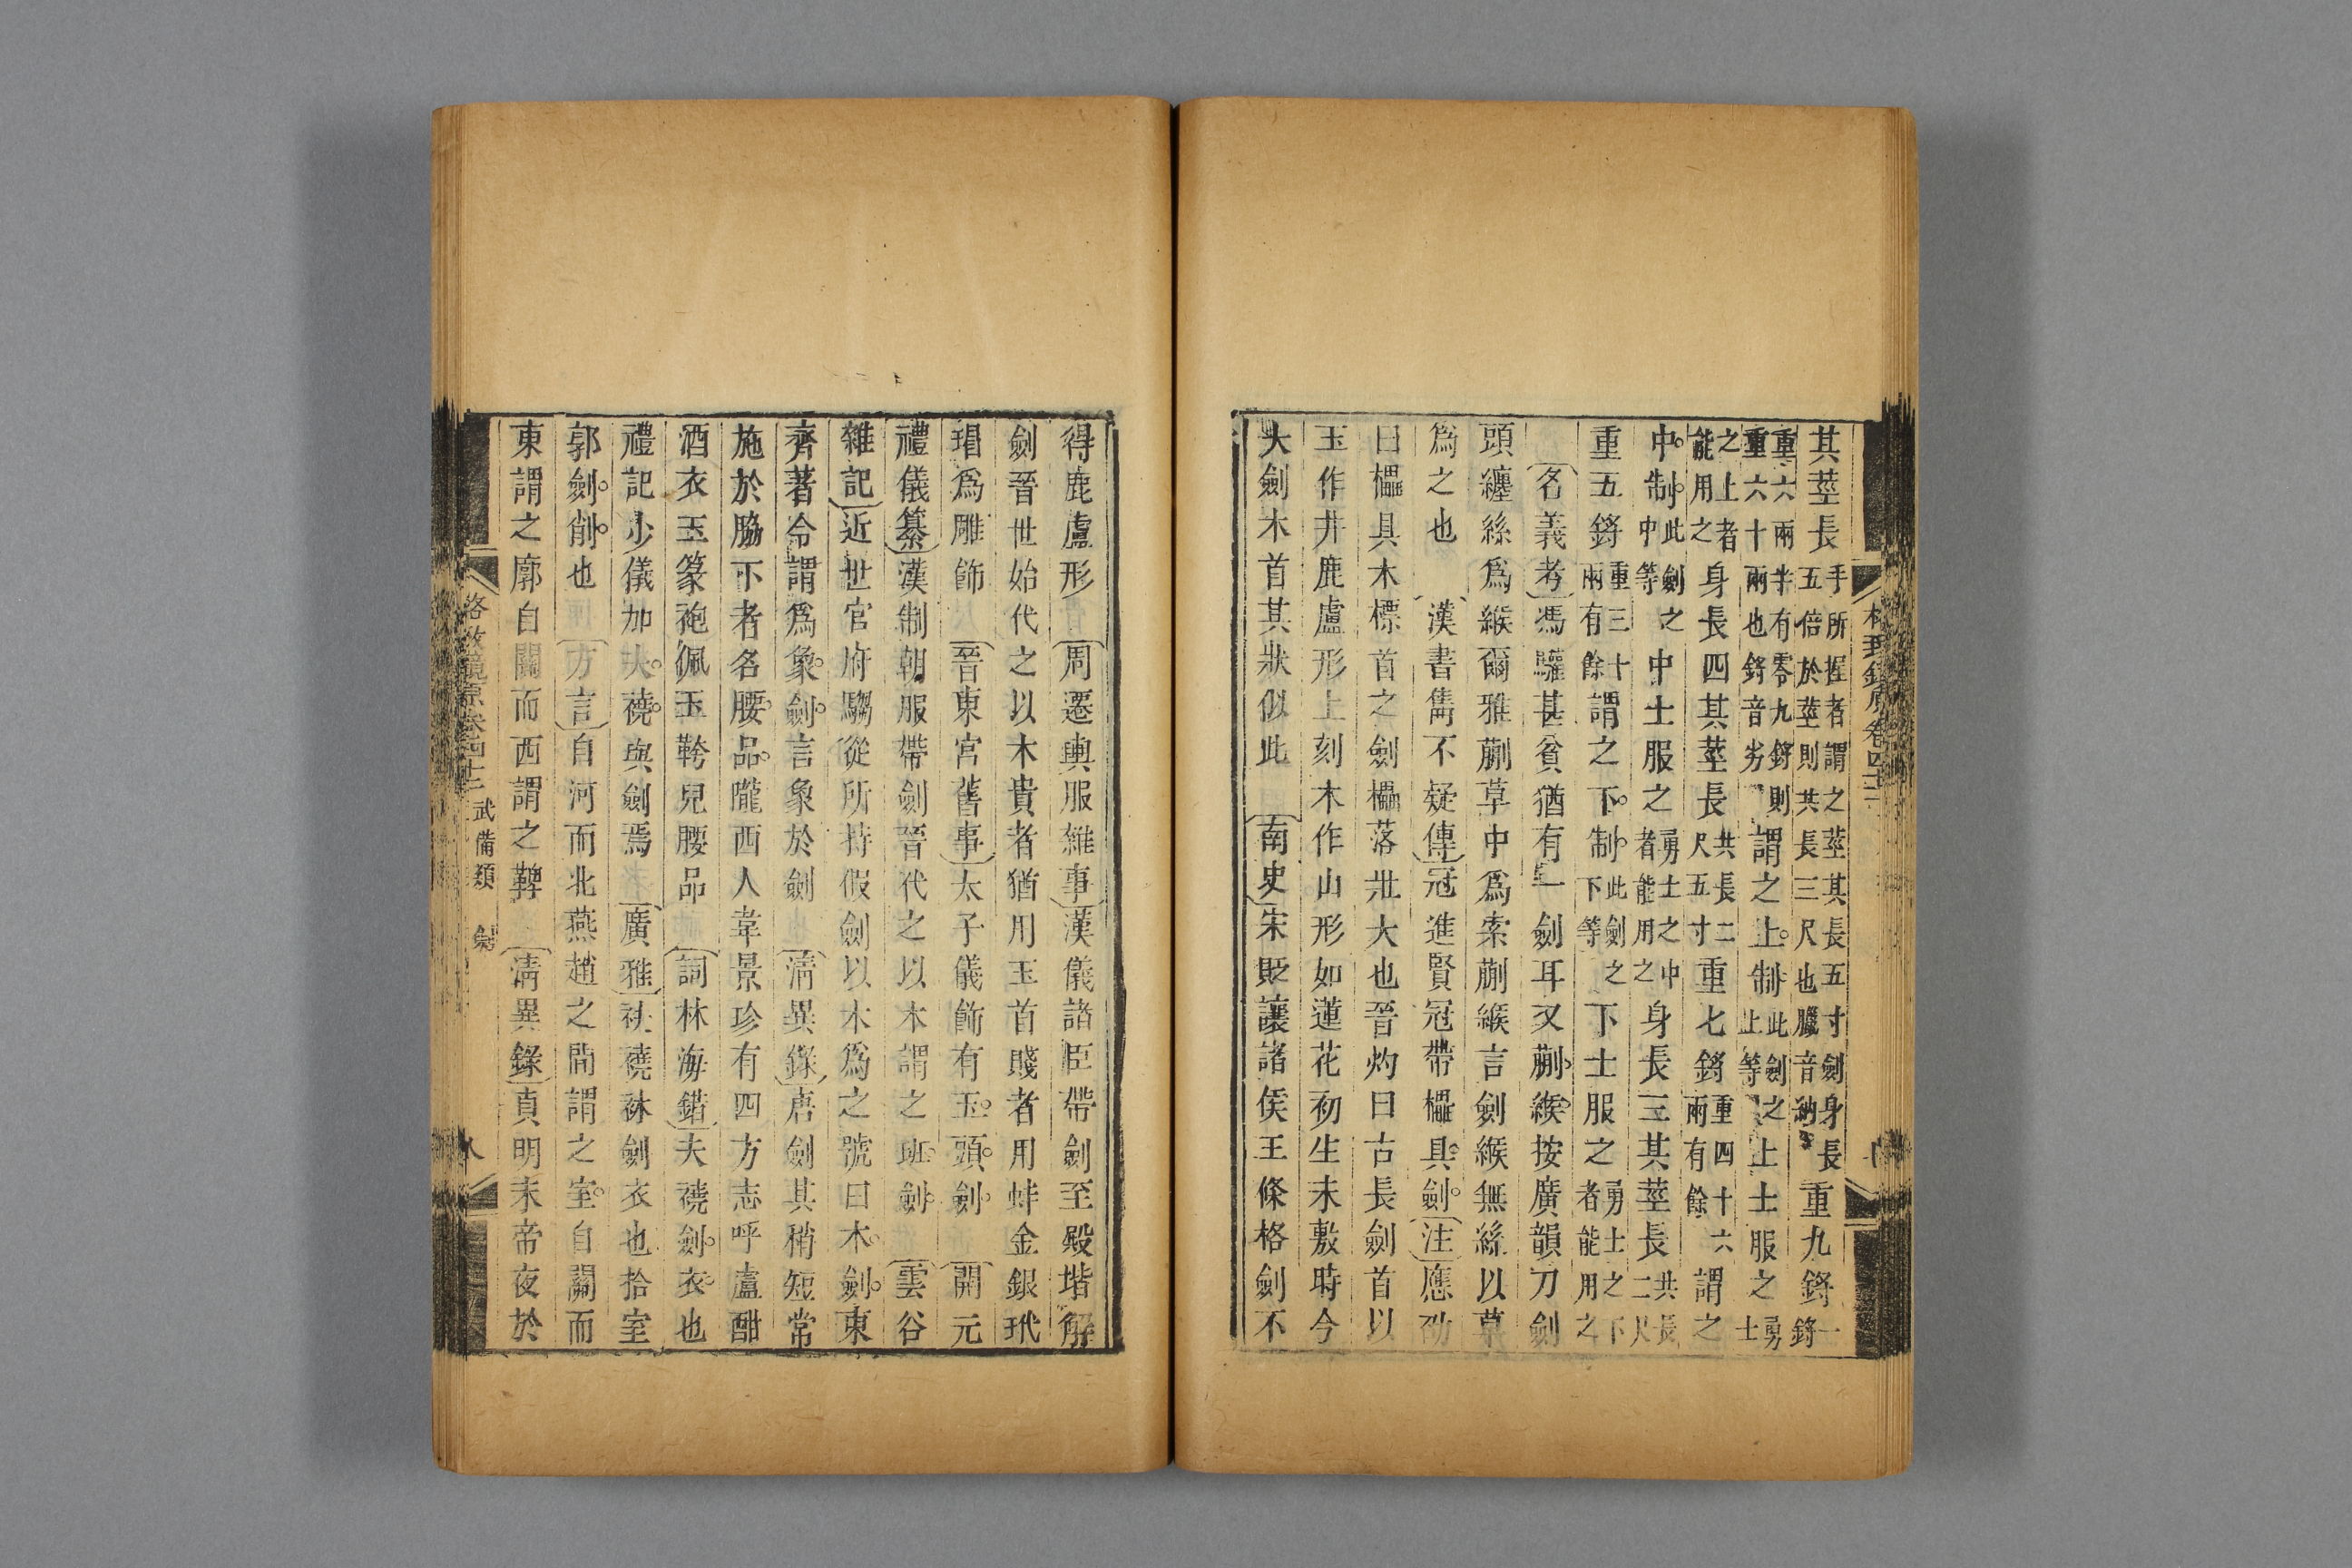 其莖長手所握者謂之莖其長五寸劍身長五倍於莖則共長三尺也臘音納重九鋝一鋝
重六兩半有零九鋝則重六十兩也鋝音劣謂之上制此劍之上等上士服之勇士
之上者能用之身長四其莖長共長二尺五寸重七鋝重四十六兩有餘謂之
中制此劍之中等中士服之勇士之中者能用之身長三其莖長共長二尺
重五鋝重三十兩有餘謂之下制此劍之下等下士服之勇士之下者能用之
名義考馮驩甚貧猶有一劍耳又蒯緱按廣韻刀劍
頭纏絲為緱爾雅蒯草中為索蒯緱言劍緱無絲以草
為之也 漢書雋不疑傳冠進賢冠帶櫑具劍注應劭
曰櫑具木標首之劍櫑落壯大也晉灼曰古長劍首以
玉作井鹿盧形上刻木作山形如蓮花初生未敷時今
大劍木首其狀似此 南史宋貶讓諸侯王條格劍不
得鹿盧形 周遷輿服雜事漢儀諸臣帶劍至殿堦解
劍晉世始代之以木貴者猶用玉首賤者用蚌金銀玳
瑁為雕飾 晉東宮舊事太子儀飾有玉頭劍 開元
禮儀纂漢制朝服帶劍晉代之以木謂之班劍 雲谷
雜記近世官府騶從所持假劍以木為之號曰木劍東
齊著令謂為象劍言象於劍 清異錄唐劍其稍短常
施於脇下者名腰品隴西人韋景珍有四方志呼盧酣
酒衣玉篆袍佩玉鞶兒腰品 詞林海錯夫襓劍衣也
禮記少儀加夫襓與劍焉 廣雅袪襓袜劍衣也拾室
郭劍削也 方言自河而北燕趙之間謂之室自關而
東謂之廓自關而西謂之鞞 清異錄真明末帝夜於
格致鏡原卷四十二 武備類 劍 八